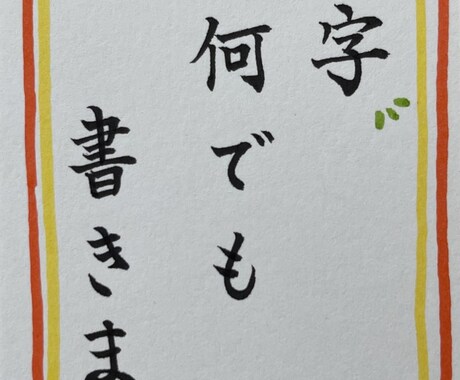 字
何でも
書きま